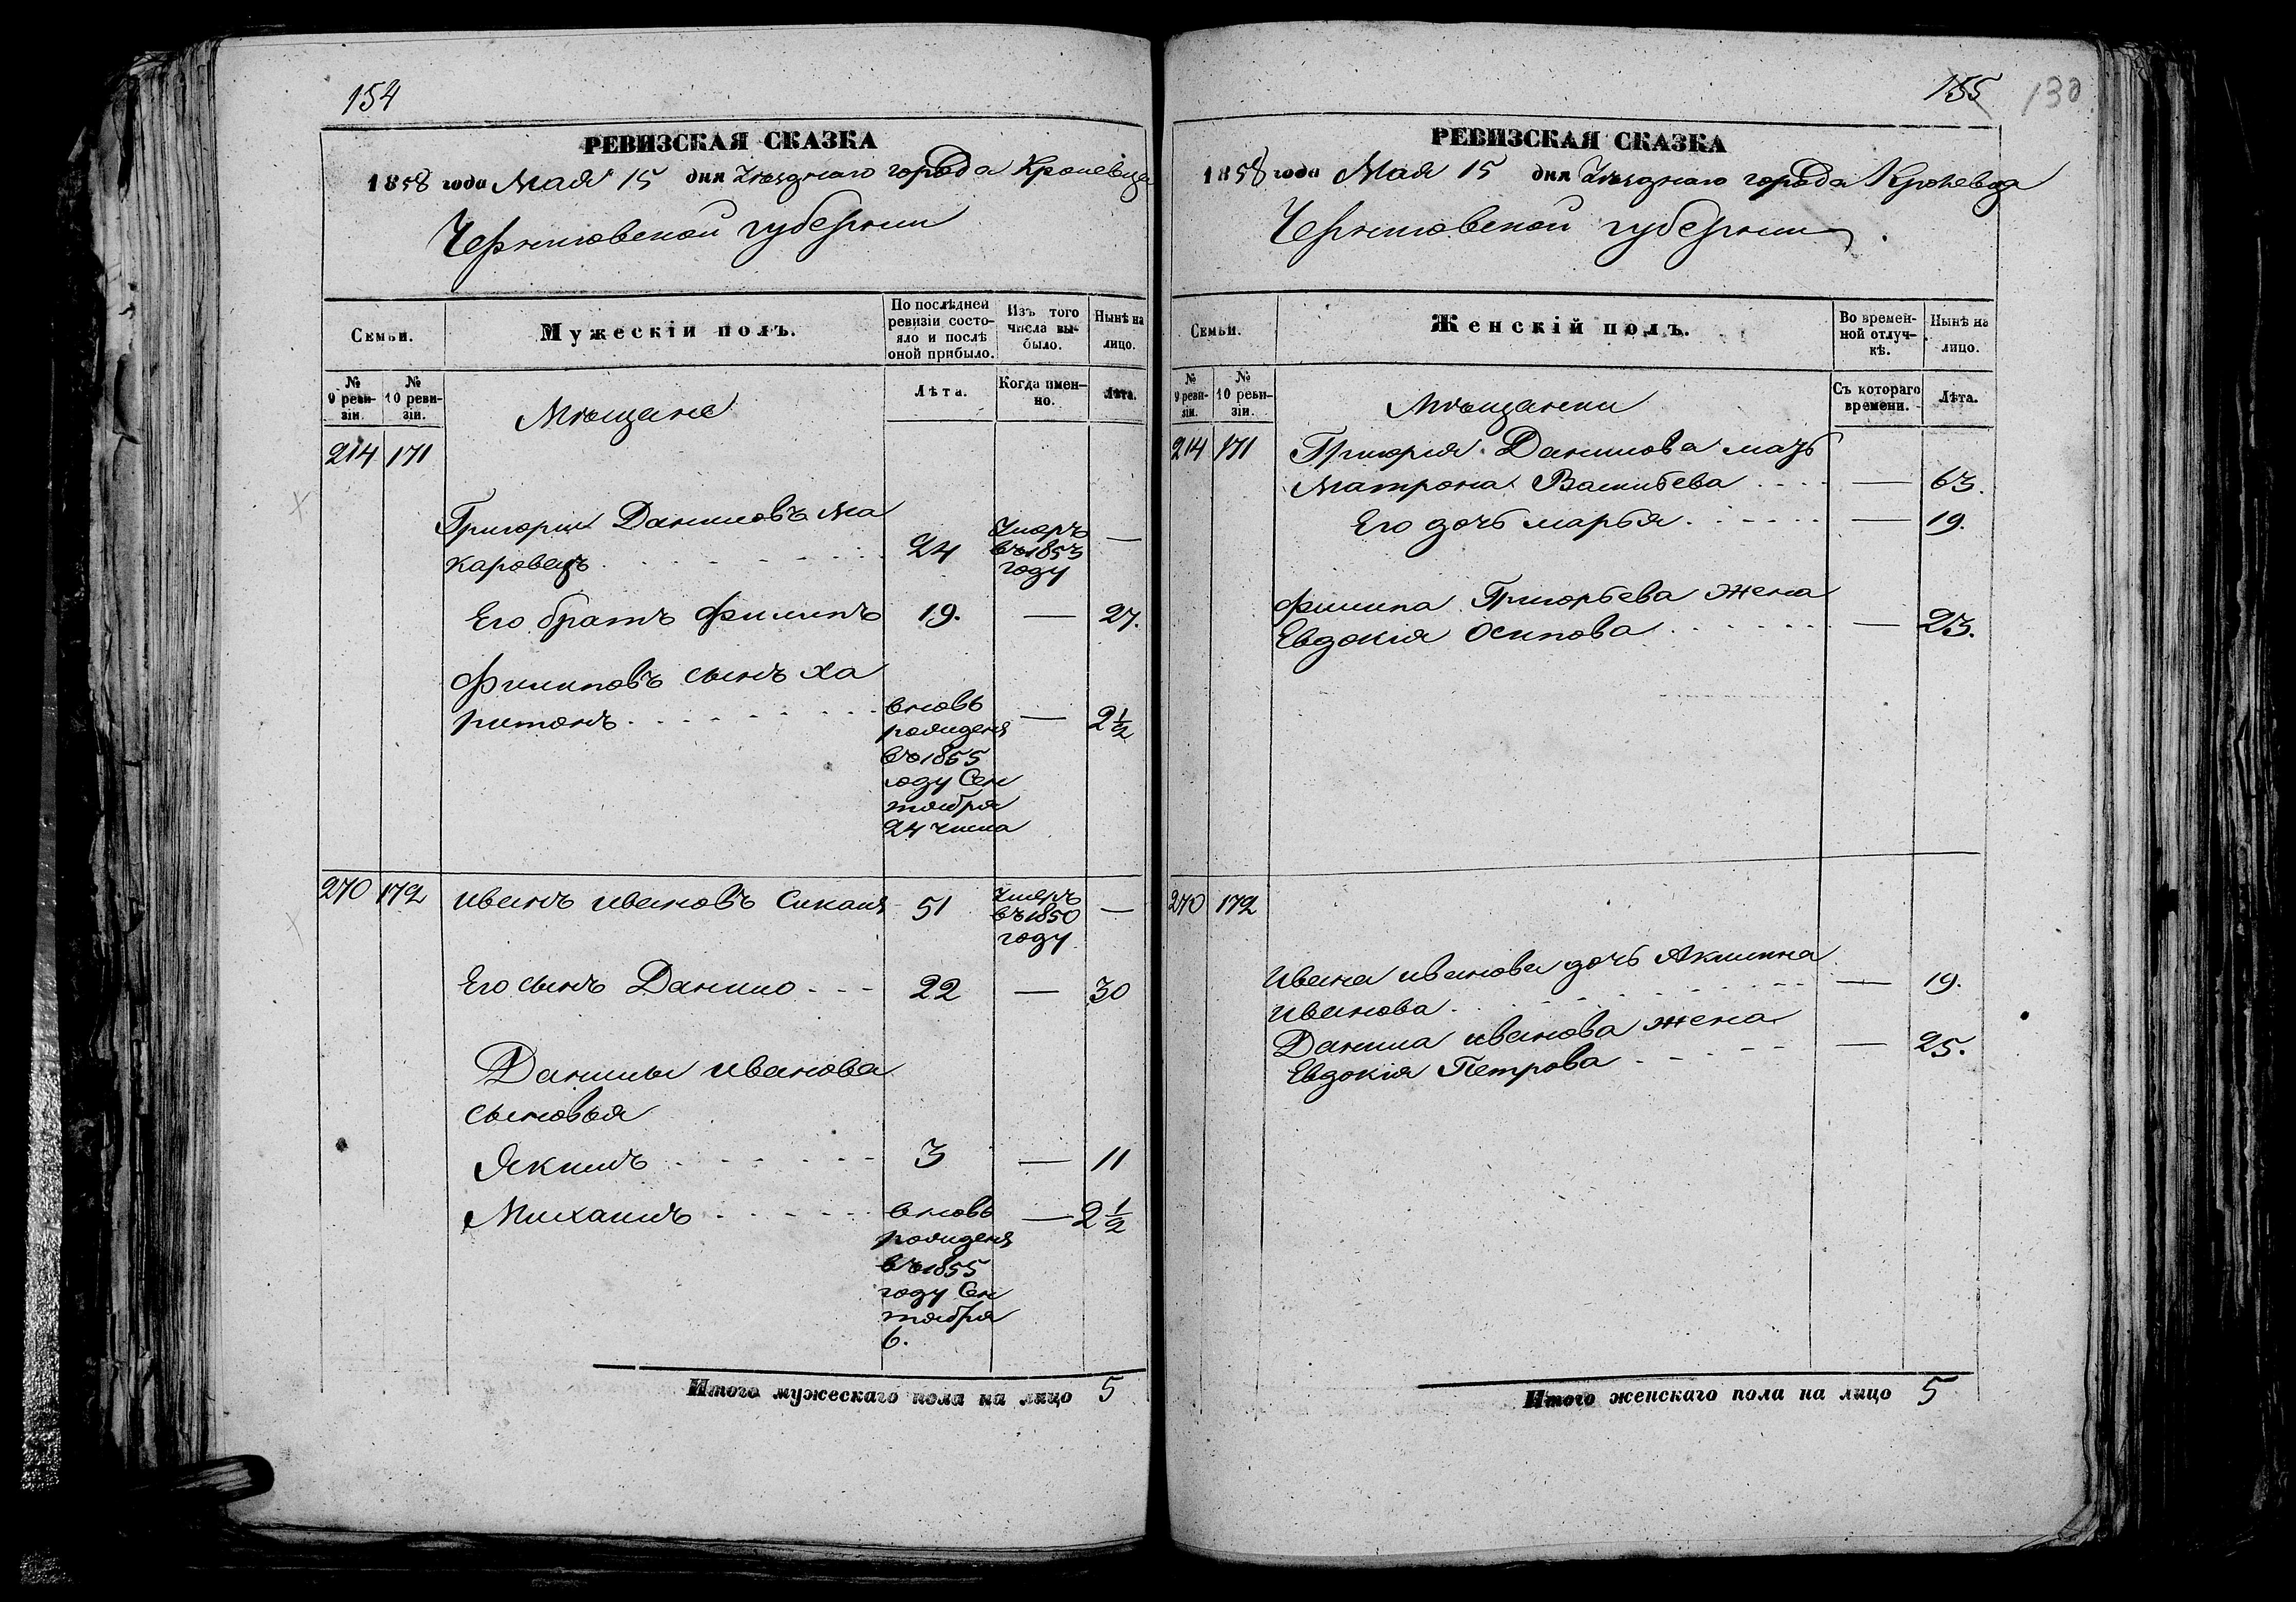 154
РЕВИЗСКАЯ СКАЗКА
1858 года Мая 15 дня Уѣзднаго города Кролевца
Черниговской губернии
Семьи.
Мужескій полъ.
По послѣдней ревизіи состояло и послѣ оной прибыло.
Изъ того числа выбыло.
Нынѣ на лицо.
№ 9 ревизіи.
№ 10 ревизіи.
Мѣщане
Лѣта.
Когда именно.
Лѣта.
214 171
Григорий Даниловъ Ма
каровецъ 24 Умеръ въ 1853 году —
Его братъ Филипъ 19. — 27.
Филиповъ сынъ Ха
ритонъ вновь — 2½
рожденъ
въ 1855
году Сен
тября
24 числа
270 172 Иванъ Ивановъ 51 Умеръ въ 1850 году —
Его сынъ Данило 22 — 30
Данилы Иванова
сыновья
Якимъ 3 — 11
Михаилъ вновь — 2½
рожденъ
въ 1855
году Сен
тября
6.
Итого мужескаго пола на лицо 5
155 130
РЕВИЗСКАЯ СКАЗКА
1858 года Мая 15 дня Уѣзднаго города Кролевца
Черниговской губернии
Семьи.
Женскій полъ.
Во временной отлучкѣ.
Нынѣ на лицо.
№ 9 ревизіи.
№ 10 ревизіи.
Мѣщанки
Съ котораго времени.
Лѣта.
214 171 Григория Данилова мать
Матрона Васильева — 63.
Его дочь Марья — 19.
Филипа Григорьева жена
Евдокия Осипова — 23.
270 172
Ивана Иванова дочь Акилина
Иванова — 19.
Данила Иванова жена
Евдокия Петрова — 25.
Итого женскаго пола на лицо 5